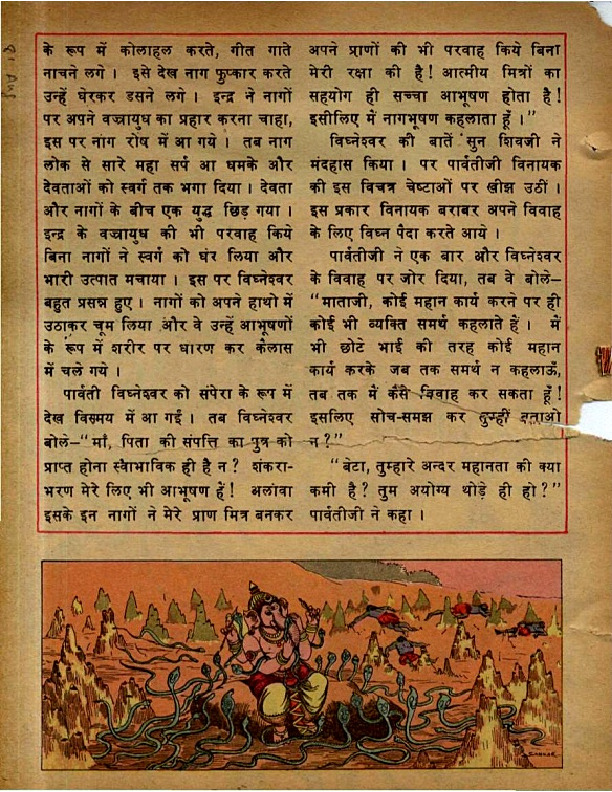 के रूप में कोलाहल करते, गीत गाते
नाचने लगे । इसे देख नाग फुप्कार करते
उन्हें घेरकर डसने लगे । इन्द्र ने नागों
पर अपने वज्रायुध का प्रहार करना चाहा,
इस पर नाग रोष में आ गये । तब नाग
लोक से सारे महा सर्प आ धमके और
देवताओं को स्वर्ग तक भगा दिया । देवता
और नागों के बीच एक युद्ध छिड़ गया ।
इन्द्र के वज्रायुध की भी परवाह किये
बिना नागों ने स्वर्ग को घेर लिया और
भारी उत्पात मचाया । इस पर विघ्नेश्वर
बहुत प्रसन्न हुए । नागों को अपने हाथों में
उठाकर चूम लिया और वे उन्हें आभूषणों
के रूप में शरीर पर धारण कर कैलास
में चले गये ।
पार्वती विघ्नेश्वर को संपेरा के रूप में
देख विस्मय में आ गईं । तब विघ्नेश्वर
बोले–“माँ, पिता की संपत्ति का पुत्र को
प्राप्त होना स्वाभाविक ही है न ? शंकरा-
भरण मेरे लिए भी आभूषण हैं ! अलावा
इसके इन नागों ने मेरे प्राण मित्र बनकर
अपने प्राणों की भी परवाह किये बिना
मेरी रक्षा की है ! आत्मीय मित्रों का
सहयोग ही सच्चा आभूषण होता है !
इसीलिए में नागभूषण कहलाता हूँ ।”
विघ्नेश्वर की बातें सुन शिवजी ने
मंदहास किया । पर पार्वतीजी विनायक
की इस विचित्र चेष्टाओं पर खीझ उठीं ।
इस प्रकार विनायक बराबर अपने विवाह
के लिए विघ्न पैदा करते आये ।
पार्वतीजी ने एक बार और विघ्नेश्वर
के विवाह पर जोर दिया, तब वे बोले–
“माताजी, कोई महान कार्य करने पर ही
कोई भी व्यक्ति समर्थ कहलाते हैं । में
भी छोटे भाई की तरह कोई महान
कार्य करके जब तक समर्थ न कहलाऊँ,
तब तक में कैसे विवाह कर सकता हूँ !
इसलिए सोच-समझ कर तुम्हीं बताओ
न ?”
“बेटा, तुम्हारे अन्दर महानता की क्या
कमी है ? तुम अयोग्य थोड़े ही हो ?”
पार्वतीजी ने कहा ।
SANKAR